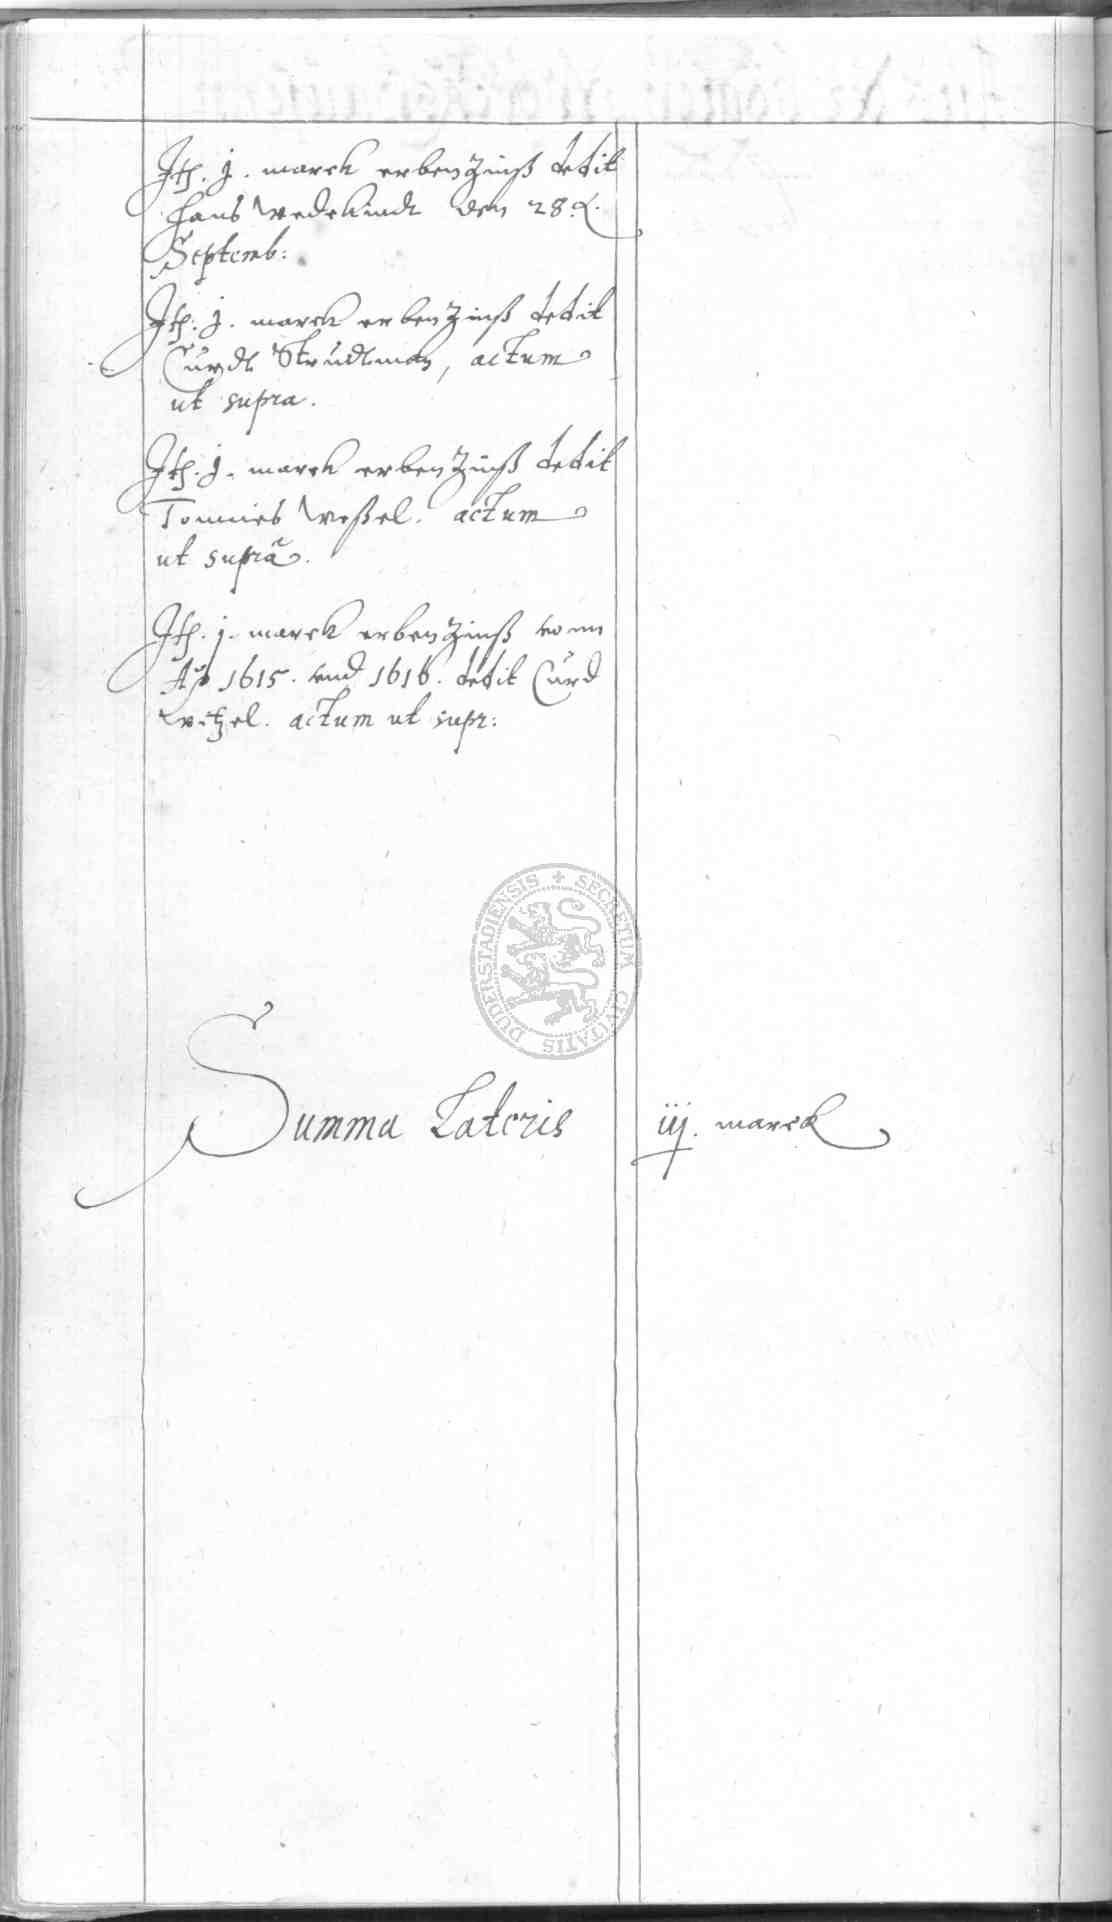 Itē. j. marck erbenZinß dedit
Hans Wedekindt den 28.
Septemb:
Itē. j. marck erbenZinß dedit
Curdt Strüdtman, actum
ut supra.
Itē. j. marck erbenZinß dedit
Tonnies Weßel. actum
ut supra.
Itē. j. marck erbenZinß vonn
Aō 1615. und 1616. dedit Curd
Wetzel. actum ut supr:
SECRETUM CIVITATIS DUDERSTADIENSIS
Summa Lateris iiij. marck